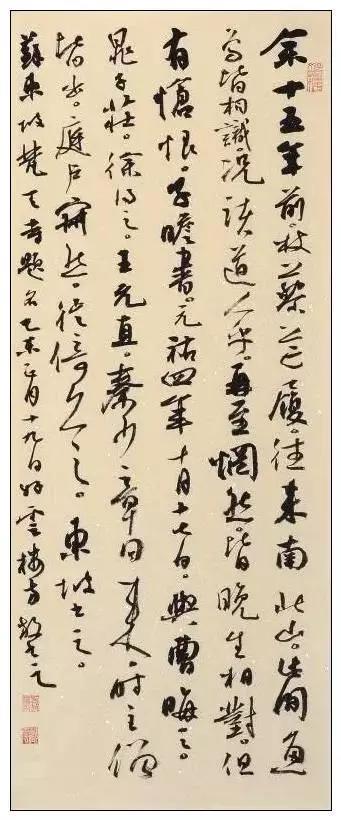 余十五年前杖藜芒屨往来南北山。此間魚
鳥皆相識。况諸道人乎。再至惘然。皆晚生相對。但
有愴恨。子瞻書。元祐四年十月十七日。與曹晦之。
晁子莊。徐得之。王元直。秦少章同来。时主僧
皆出。庭户寂然。徙倚久之。東坡书之。
蘇東坡梵天寺題名乙未正月十九日雲樓方